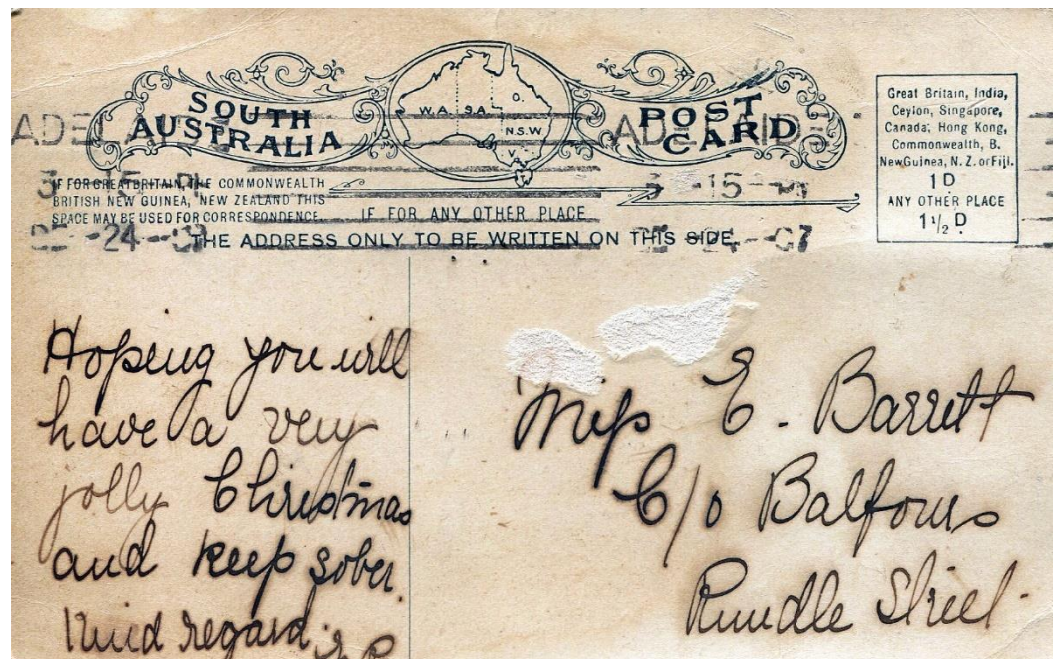 SOUTH
AUSTRALIA
W.A. S.A. Q.
N.S.W
V.
POST
CARD
Great Britain, India,
Ceylon, Singapore,
Canada, Hong Kong,
Commonwealth, B.
New Guinea, N. Z. or Fiji.
1 D
ANY OTHER PLACE
1½ D.
ADELAIDE
3 -15 PM
IF FOR GREAT BRITAIN, THE COMMONWEALTH
BRITISH NEW GUINEA, NEW ZEALAND THIS
SPACE MAY BE USED FOR CORRESPONDENCE
IF FOR ANY OTHER PLACE
THE ADDRESS ONLY TO BE WRITTEN ON THIS SIDE.
-24 - 07
Hoping you will
have a very
jolly Christmas
and keep sober.
Kind regard.
Miss E. Barrett
C/o Balfours
Rundle Street.